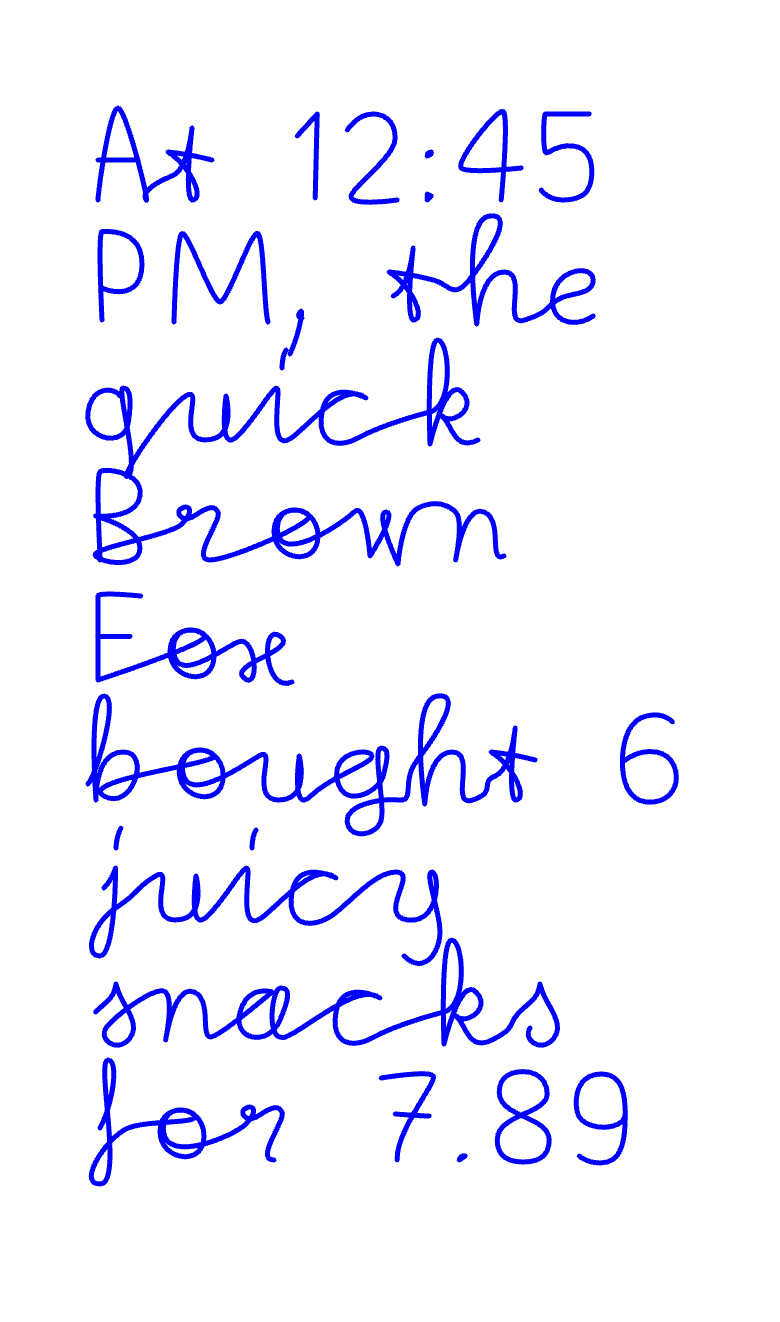 At 12:45
PM, the
quick
Brown
Fox
bought 6
juicy
snacks
for 7.89